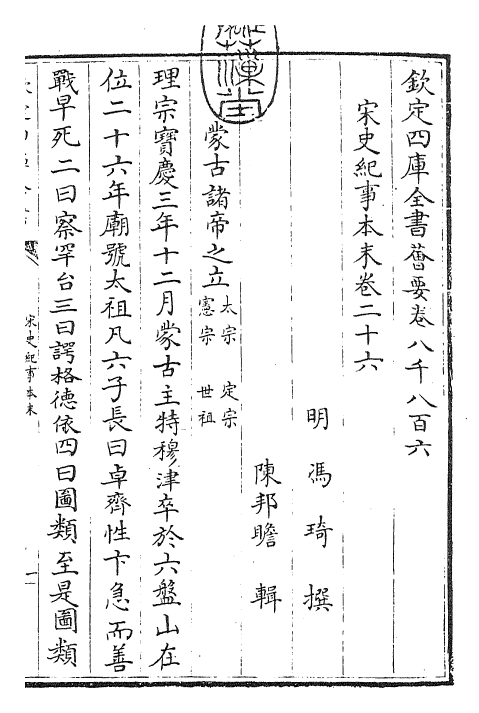 欽定四庫全書薈要卷八千八百六
宋史紀事本末卷二十六
明 馮琦 撰
陳邦瞻 輯
蒙古諸帝之立 太宗 定宗
憲宗 世祖
理宗寶慶三年十二月蒙古主特穆津卒於六盤山在
位二十六年廟號太祖凡六子長曰卓齊性卞急而善
戰早死二曰察罕台三曰諤格德依四曰圖類至是圖類
宋史紀事本末
一